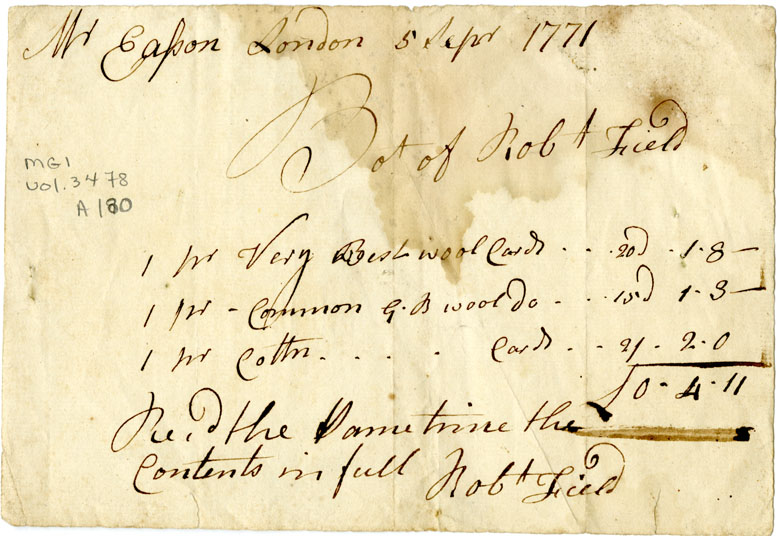 Mr Eaſson London 5 Sepr 1771
Bot of Robt Field
MG1
vol. 3478
A 180
1 pr Very Best wool Cards - - - 20d - 1 - 8 -
1 pr - Common G. B wool Do - - - 15d 1 - 3 -
1 pr Cottn - - - - Cards - - 2/ - 2 - 0
0 - 4 - 11
Rec,d the Same time the
Contents in full Robt Field